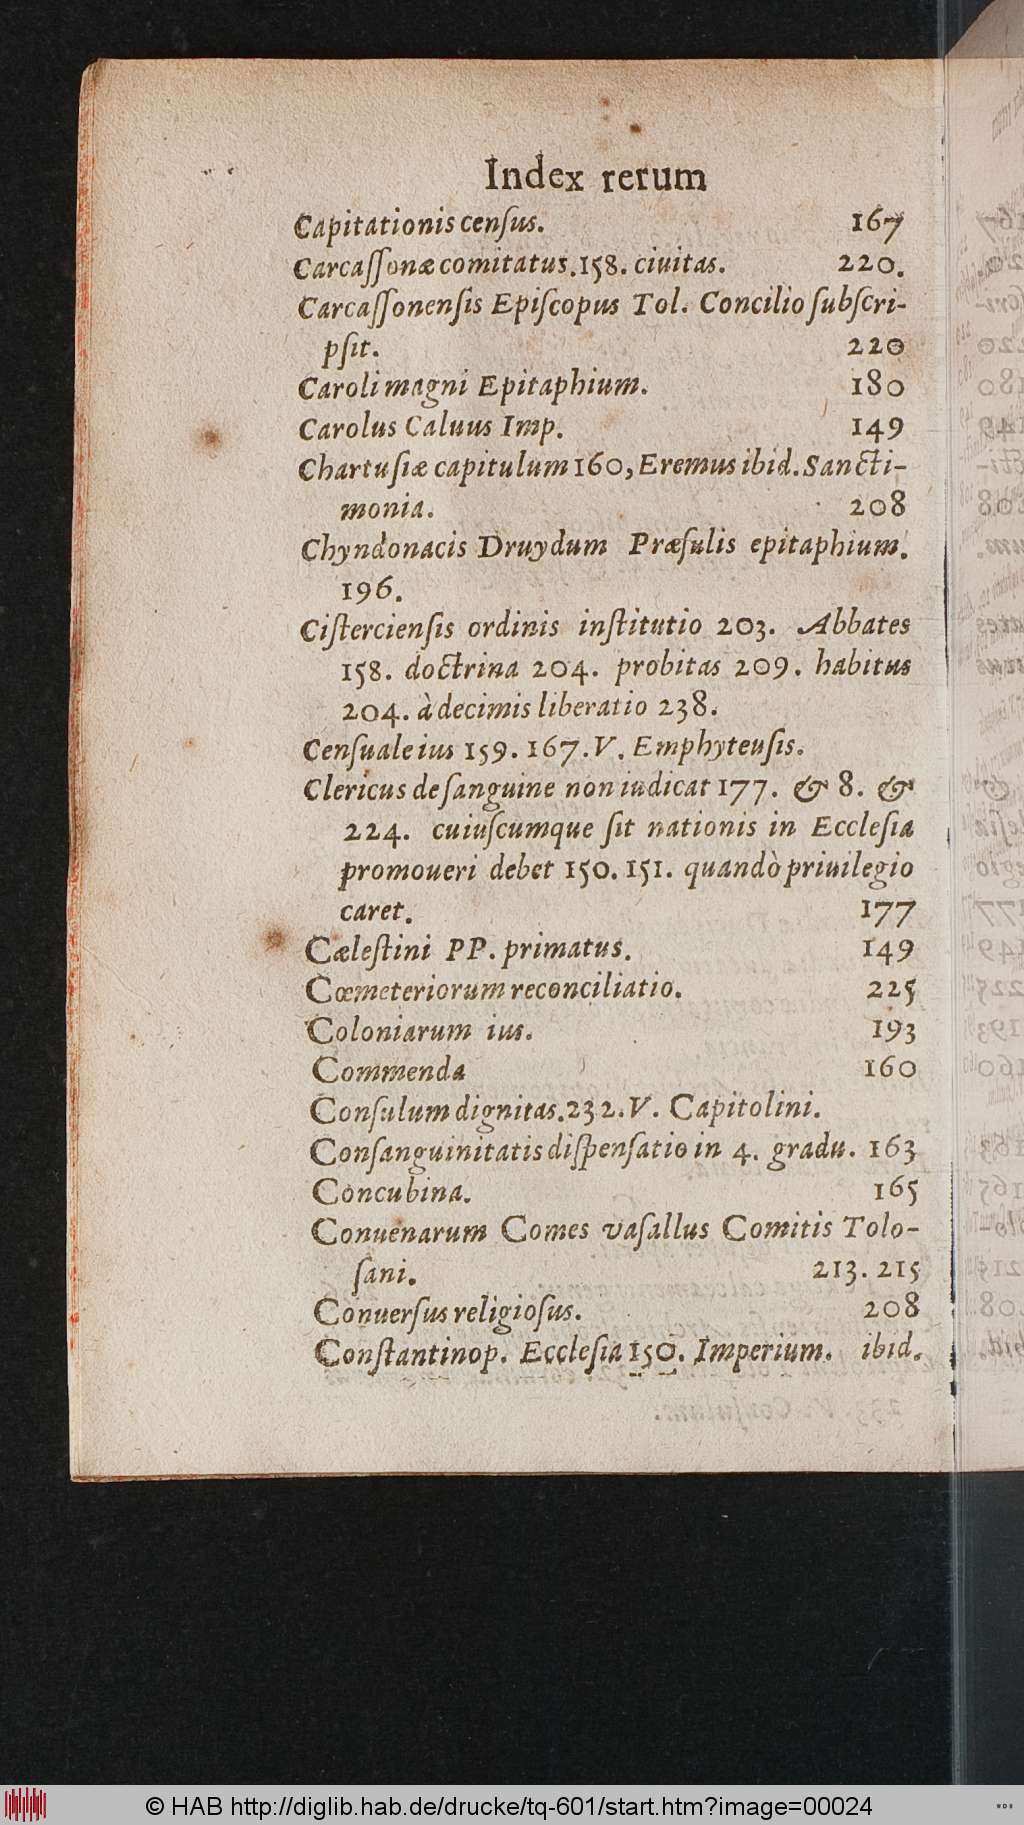 Index rerum
Capitationis cenſus. 167
Carcaſſonæ comitatus. 158. ciuitas. 220.
Carcaſſonenſis Epiſcopus Tol. Concilio ſubſcri-
pſit. 220
Caroli magni Epitaphium. 180
Carolus Caluus Imp. 149
Chartuſiæ capitulum 160, Eremus ibid. Sancti-
monia. 208
Chyndonacis Druydum Præſulis epitaphium.
196.
Ciſtercienſis ordinis inſtitutio 203. Abbates
158. doctrina 204. probitas 209. habitus
204. à decimis liberatio 238.
Cenſuale ius 159. 167. V. Emphyteuſis.
Clericus de ſanguine non iudicat 177. & 8. &
224. cuiuſcumque ſit nationis in Eccleſia
promoueri debet 150. 151. quandò priuilegio
caret. 177
Cæleſtini PP. primatus. 149
Cœmeteriorum reconciliatio. 225
Coloniarum ius. 193
Commenda 160
Conſulum dignitas. 232. V. Capitolini.
Conſanguinitatis diſpenſatio in 4. gradu. 163
Concubina. 165
Conuenarum Comes vaſallus Comitis Tolo-
ſani. 213. 215
Conuerſus religioſus. 208
Conſtantinop. Eccleſia 150. Imperium. ibid.
© HAB http://diglib.hab.de/drucke/tq-601/start.htm?image=00024